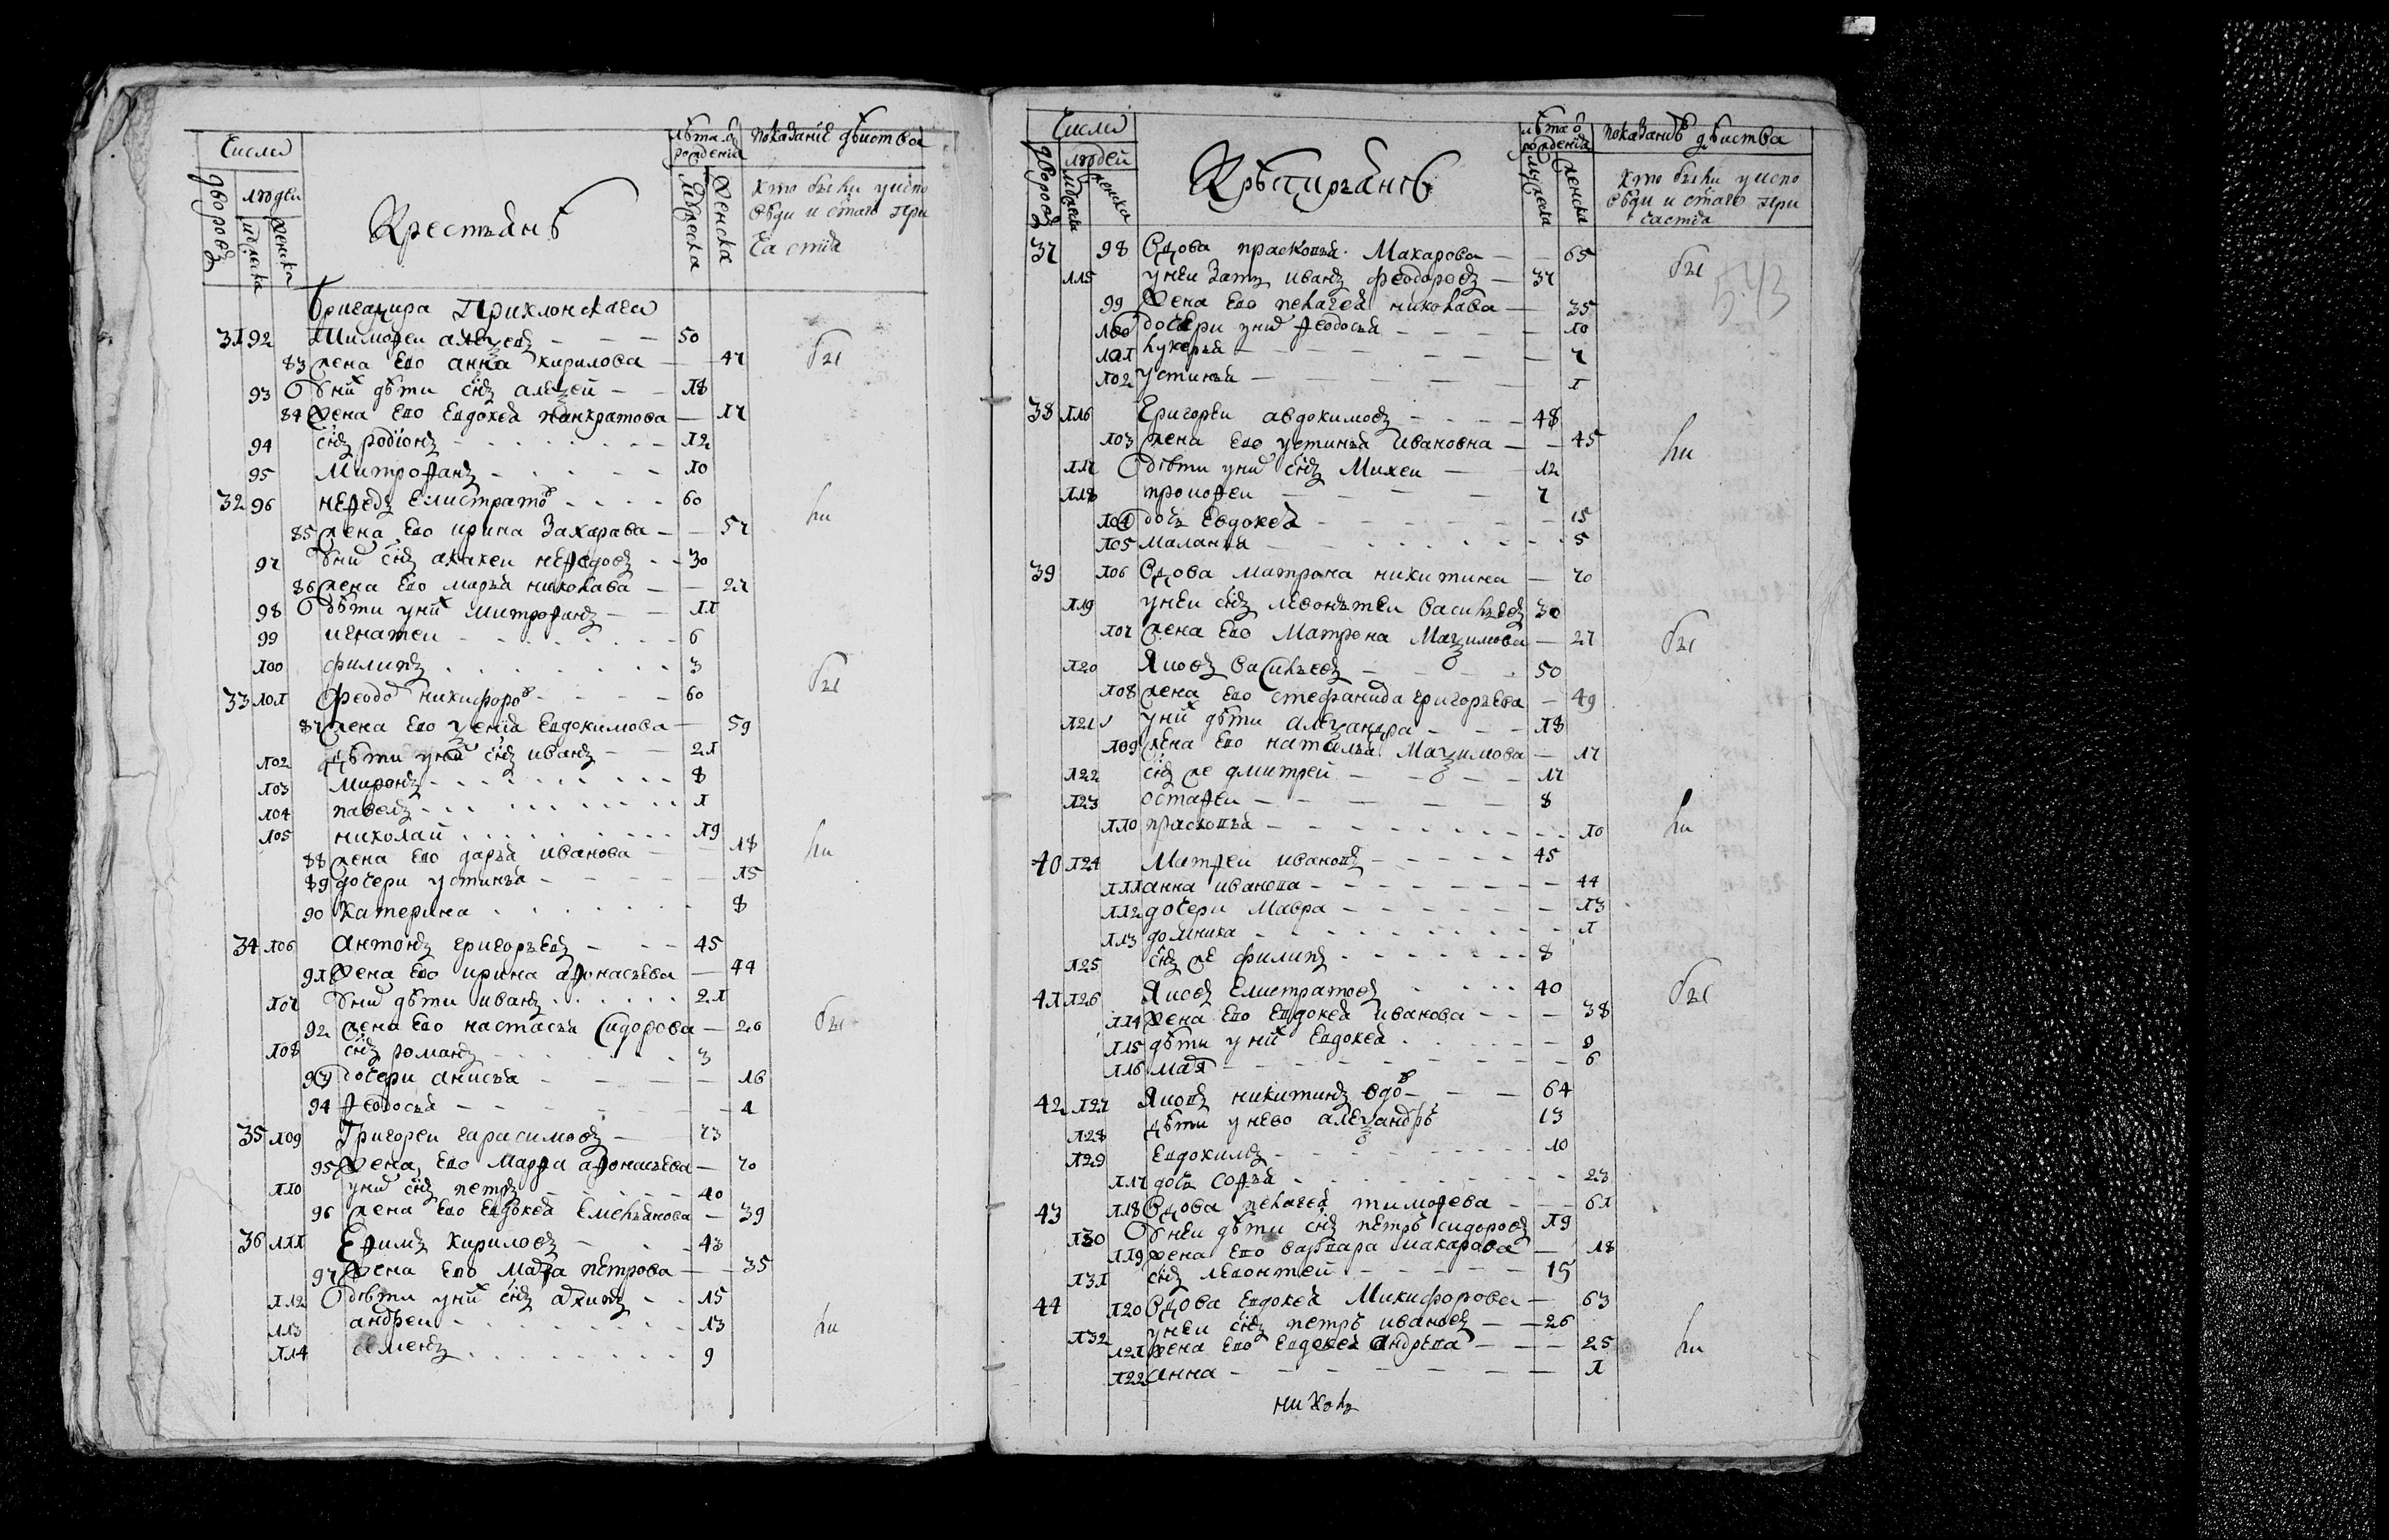 Число
лѣта ѿ рожденїа
показанїе дѣиства
дворовъ
людеи
мужеска
женска
Крестьянъ
мужеска
женска
хто были у испо
вѣди и с͠таго при
частїа
бригадира Приклонскаго
31 92 Тимофеи алеѯеевъ — — — 50 бы
83 жена ево анна кирилова — — 47
93 У них дѣти с͠нъ алеѯей — — 18
84 жена ево Евдокея панкратова — 17
94 с͠нъ родїонъ - - - - 12
95 Митрофанъ - - - - 10
32 96 нефедъ Елистратовъ - - - - 60 ли
85 жена ево ирина Захарова — — 57
97 У них с͠нъ акакеи нефедовъ - - 30
86 жена ево марья николава — — 27
98 дѣти у них митрофанъ — — 11
99 игнатеи - - - - 6
100 филипъ - - - - 3
33 101 Феодо никифоровъ - - - - 60 бы
87 жена ево ѯенїа Евдокимова — 59
102 дѣти у них с͠нъ иванъ — — 21
103 миронъ - - - - 8
104 павелъ - - - - 1
105 николай - - - - 19
88 жена ево дарья иванова — — 18 ли
89 дочери устинья - - - - 15
90 Катерина - - - - 8
34 106 антонъ григорьевъ — - - 45
91 жена ево ирина афонасьева — 44
107 У них дѣти иванъ - - - - 21
92 жена ево настасья Сидорова — 26 бы
108 с͠нъ романъ - - - - 3
93 дочери анисья — — — 16
94 феодосья — - - - 1
35 109 Григореи гарасимовъ — 73
95 жена ево Марфа афонасьева — 70
110 у них с͠нъ петръ - - - - 40
96 жена ево Евдокея Емельянова — 39
36 111 Ефимъ кириловъ — - - 43
97 жена ево Мавра петрова — — 35
112 дѣти у них с͠нъ архипъ - - 15
113 андреи - - - - 13 ли
114 семенъ - - - - 9
Число
лѣта ѿ рожденїа
показанїе дѣиства
дворовъ
людей
мужеска
женска
Крѣстьянъ
мужеска
женска
хто были у испо
вѣди и с͠таго при
частїа
37 98 Вдова прасковья Макарова — — 65 бы
543
115 у неи зять иванъ феодоровъ — 37
99 жена ево пелагея николава — 35
100 дочери у них феодосья - - - - 10
101 лукерья — — — — 7
102 Устинья — — — — 1
38 116 Григореи авдокимовъ - - - - 48
103 жена ево устинья Ивановна — - 45 ли
117 дѣти у них с͠нъ Михеи — 12
118 Тимофеи — — — — 7
104 дочь Евдокея - - - - 15
105 маланья — - - - - 5
39 106 Вдова матрона никитина — 70
119 у неи с͠нъ леонътеи васильевъ 30
107 жена ево Матрона Маѯимова — 27 бы
120 Яковъ васильевъ — - - 50
108 жена ево стефанида григорьева — 49
121 у них дѣти алеѯандра - - - 18
109 жена ево наталья Маѯимова — 17
122 с͠нъ же дмитрей — - - 17
123 остафеи — — — — 8
110 прасковья - - - - 10 ли
40 124 Матфеи ивановъ - - - - 45
111 анна иванова - - - - 44
112 дочери Мавра - - - - 13
113 домника - - - - 1
125 с͠нъ же филипъ - - - - 8
41 126 Яковъ Елистратовъ - - - - 40 бы
114 жена ево Евдокея иванова - - — 38
115 дѣти у них Евдокея - - - - 9
116 - - - - 6
42 127 Яковъ никитинъ вдовъ — — 64
128 дѣти у нево алеѯандръ 13
129 Евдокимъ - - - - 10
117 дочь софья - - - - 23
43 118 Вдова пелагея тимофева - - - 61
130 У неи дѣти с͠нъ петръ сидоровъ 19
119 жена ево варвара макарова — 18
131 с͠нъ левонтей - - - - 15
44 120 Вдова Евдокея Микифорова — 63
132 у неи с͠нъ петръ ивановъ — — 26
121 жена ево Евдокея андрева — - — 25 ли
122 анна - - - - 1
николъ